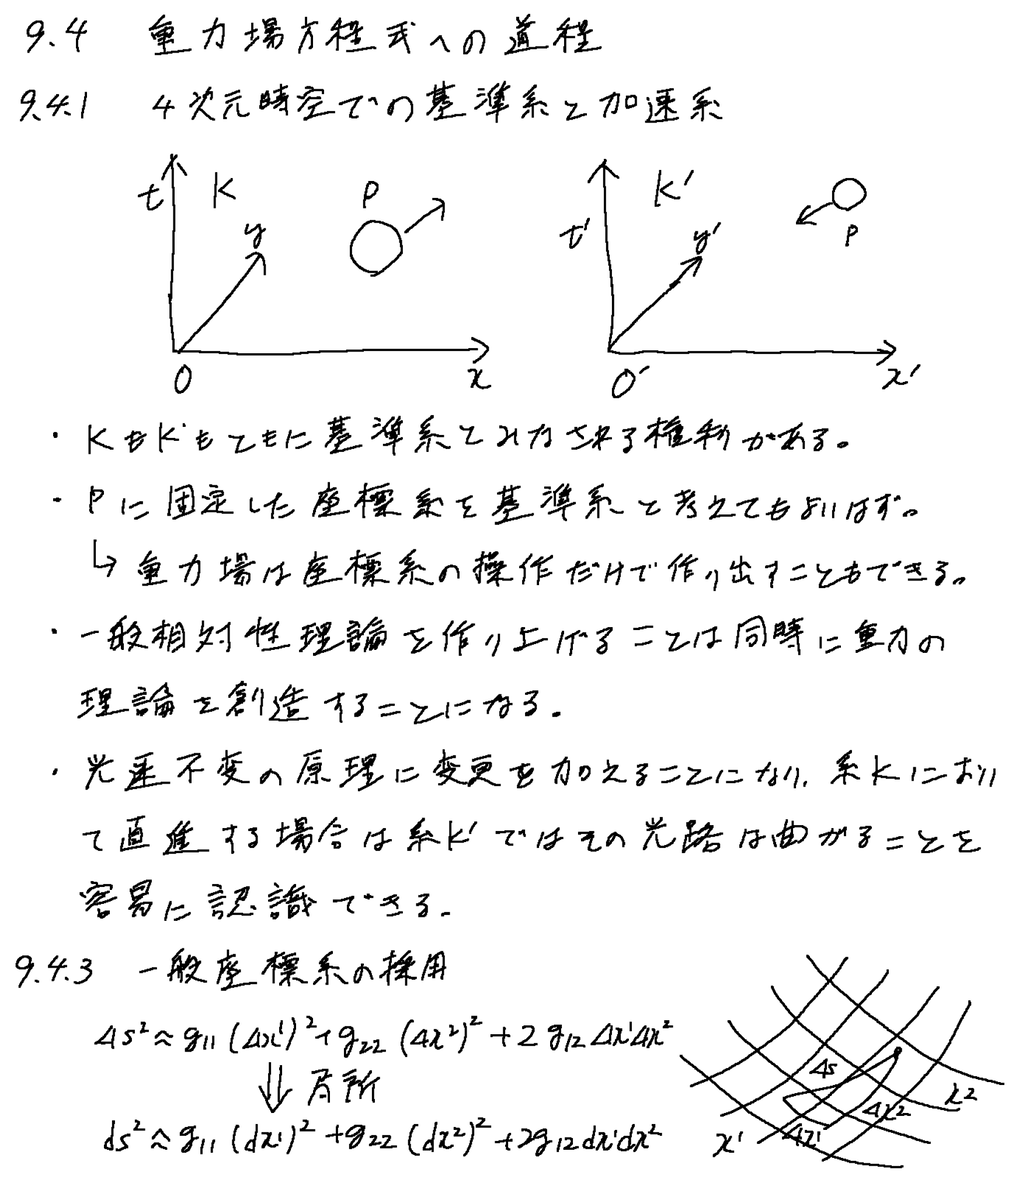 9.4 重力場方程式への道程
9.4.1 4次元時空での基準系と加速系
t K y P O x
t' K' y' P O' x'
・KもK'もともに基準系とみなされる権利がある。
・Pに固定した座標系を基準系と考えてもよいはず。
↳ 重力場は座標系の操作だけで作り出すこともできる。
・一般相対性理論を作り上げることは同時に重力の
理論を創造することになる。
・光速不変の原理に変更を加えることになり、系Kにおい
て直進する場合は系K'ではその光路は曲がることを
容易に認識できる。
9.4.3 一般座標系の採用
Δs²≈g₁₁(Δx¹)²+g₂₂(Δx²)²+2g₁₂Δx¹Δx²
⇓ 局所
ds²≈g₁₁(dx¹)²+g₂₂(dx²)²+2g₁₂dx¹dx²
Δs Δx² x² x¹ Δx¹